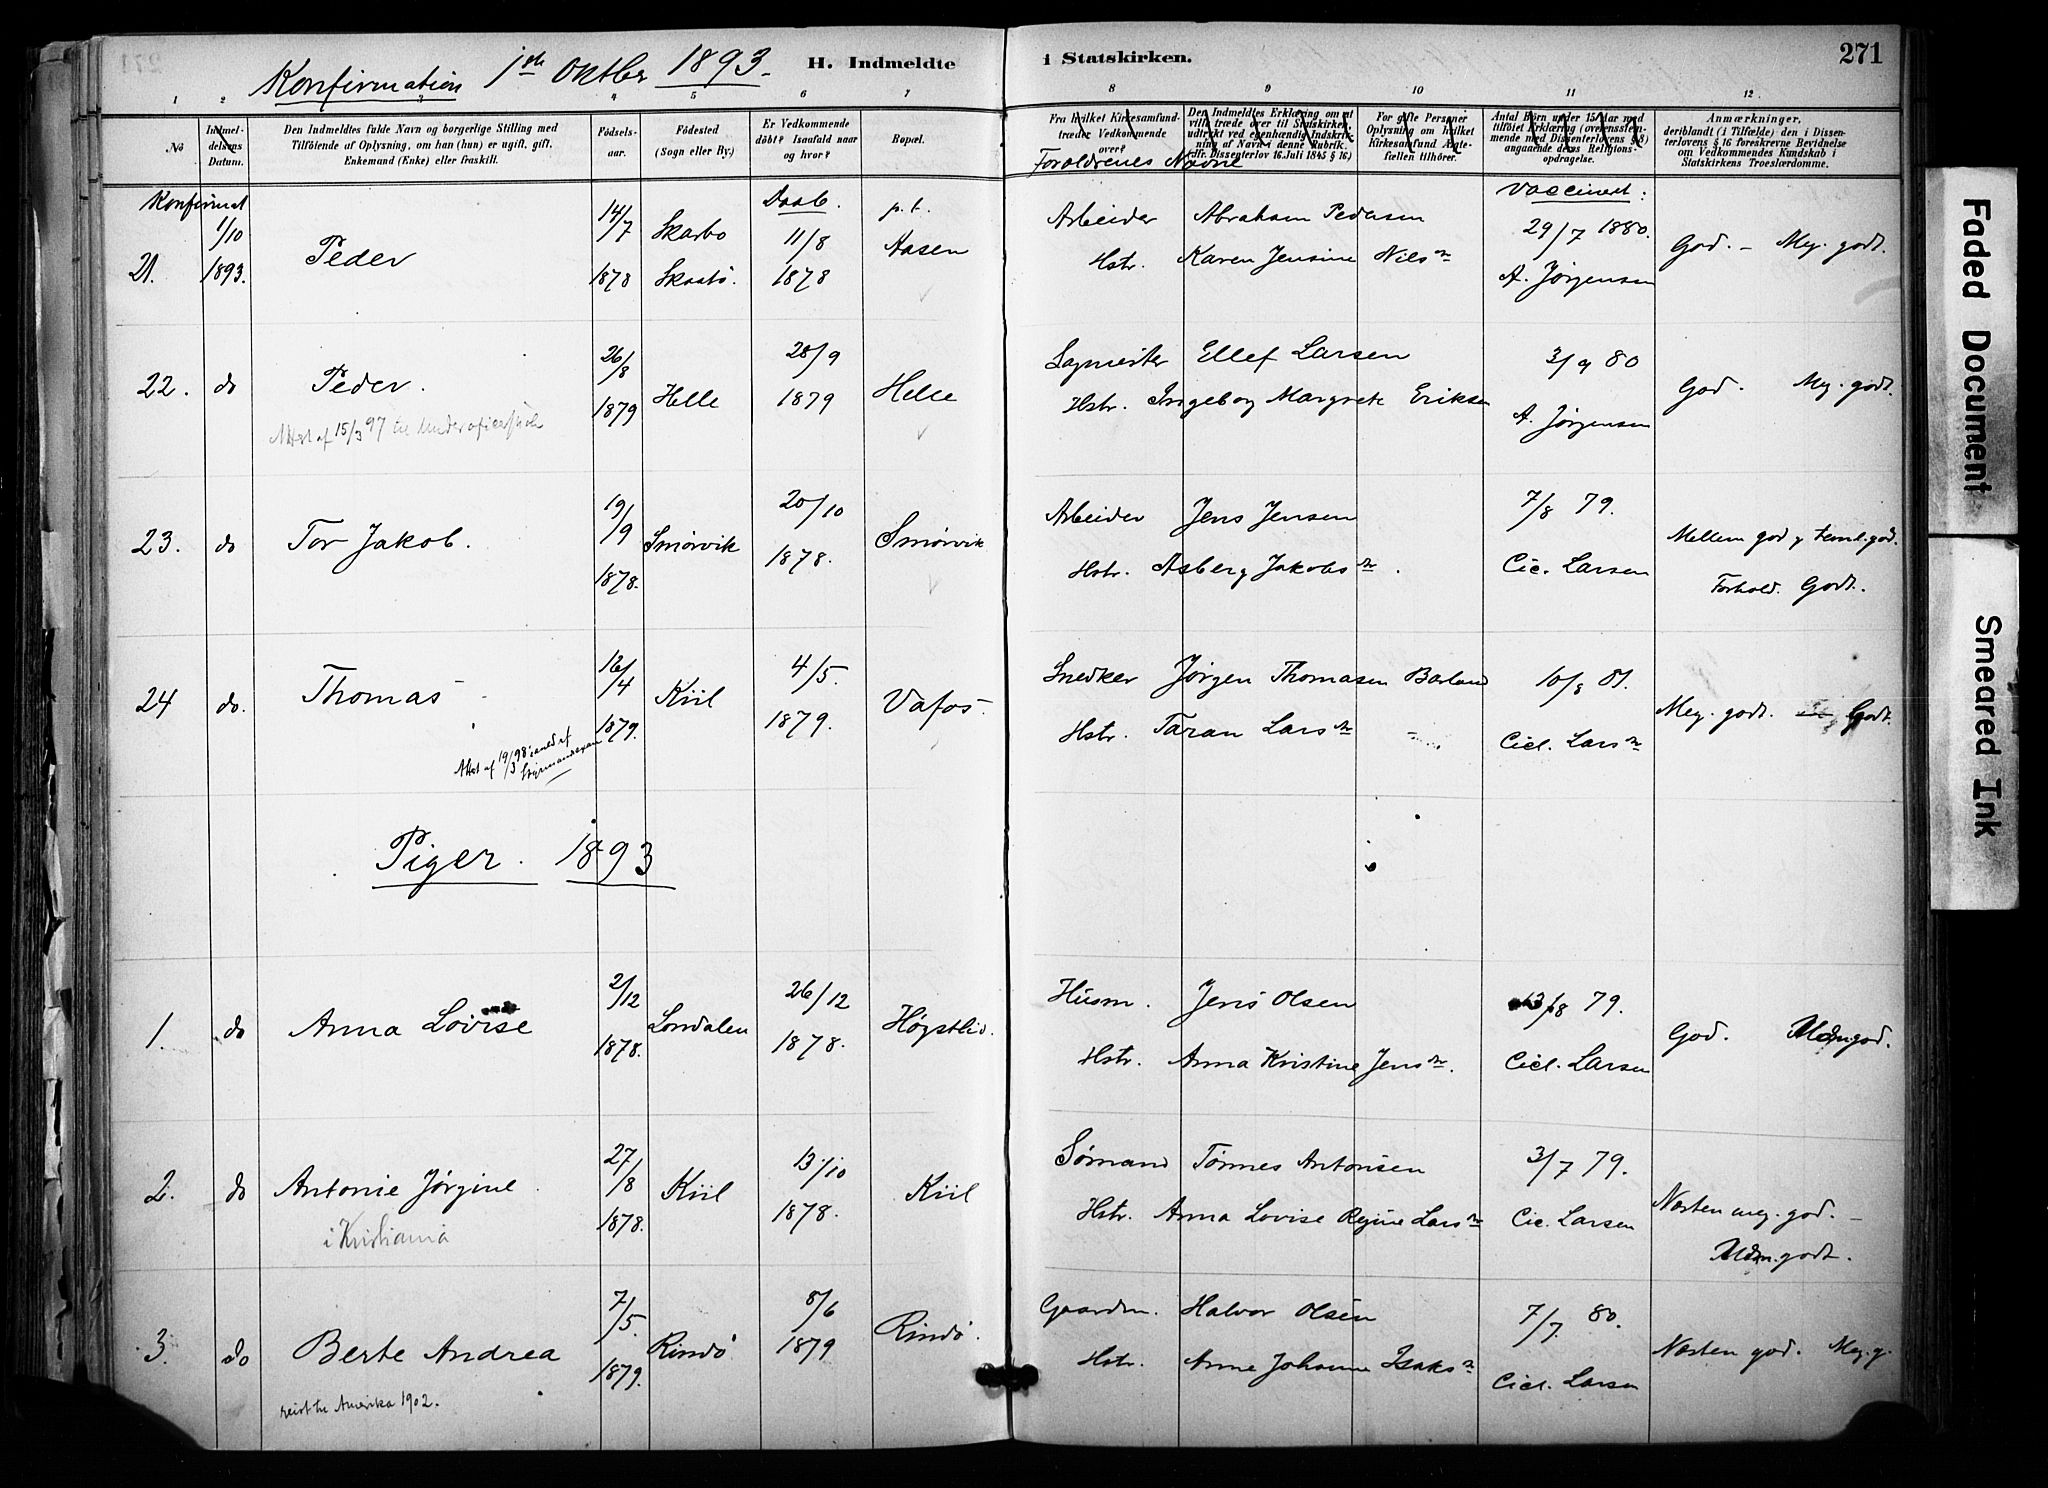 Konfirmation 1ste Oktbr 1893.
H. Indmeldte i Statskirken.
271
1 2 3 4 5 6 7 8 9 10 11 12
No
Indmeldelsens Datum.
Den Indmeldtes fulde Navn og borgerlige Stilling med Tilföiende af Oplysning, om han (hun) er ugift, gift, Enkemand (Enke) eller fraskilt.
Födselsaar.
Födested (Sogn eller By.)
Er Vedkommende döbt? Isaafald naar og hvor?
Bopæl.
Fra hvilket Kirkesamfund træder Vedkommende over?
Den Indmeldtes Erklæring om at ville træde over til Statskirken, udtrykt ved egenhændig Indskrivning af Navn i denne Rubrik. (Jfr. Dissenterlov 16. Juli 1845 § 16.)
For gifte Personer Oplysning om hvilket Kirkesamfund Ægtefællen tilhörer.
Antal Börn under 15 Aar med tilföiet Erklæring (overensstemmende med Dissenterlovens § 8) angaaende deres Religionsopdragelse.
Anmærkninger, deriblandt (i Tilfælde) den i Dissenterlovens § 16 foreskrevne Bevidnelse om Vedkommendes Kundskab i Statskirkens Troeslærdomme.
Forældrenes Navne
Konfirmat
Daab.
Vaccineret:
21. 1/10 1893. Peder 14/7 1878 Skarbo Skaatö. 11/8 1878 p.t. Aasen
Arbeider Abraham Pedersen 29/7 1880. God. - Meg. godt.
Hstr. Karen Jensine Nilsn A. Jørgensen
22. do Peder. 26/8 1879 Helle 28/9 1879 Helle
Attest af 15/3 97 til Underoficerskole
Sagmester Ellef Larsen 3/9 80 God. Meg. godt.
Hstr. Ingeborg Margrete Eriksen A. Jørgensen
23. do Tor Jakob. 19/9 1878. Smörvik 20/10 1878. Smörvik
Arbeider Jens Jensen 7/8 79. Mellem god og teml. god.
Hstr. Asberg Jakobsn. Cic. Larsen Forhold. Godt.
24 do. Thomas 16/4 1879. Kiil 4/5. 1879. Vafos.
Attest af 19/3 98 i anled. af Styrmandsexam
Snedker Jørgen Thomasen Barland 10/8 81. Meg. godt. Godt.
Hstr. Taran Larsn Cicl. Larsn
Piger. 1893
1. do Anna Lovise 2/12 1878. Londalen 26/12 1878. Högstlid.
Husm. Jens Olsen 13/8 79. God. Udm. god.
Hstr. Anna Kristine Jensn. Cicl. Larsen
2. do Antonie Jørgine. 27/8 1878. Kiil 13/10 1878. Kiil
i Kristiania
Sömand Tönnes Antonsen 3/7 79. Næsten meg. god. -
Hstr. Anna Lovise Regine Larsn Cic. Larsen Udm. godt.
3. do Berte Andrea 7/5. 1879. Rindö 8/6 1879 Rindö.
reist til Amerika 1902.
Gaardm. Halvor Olsen 7/7. 80. Næsten god. Meg. g.
Hstr. Anne Johanne Isaksn Cicl. Larsen
Faded Document
Smeared Ink